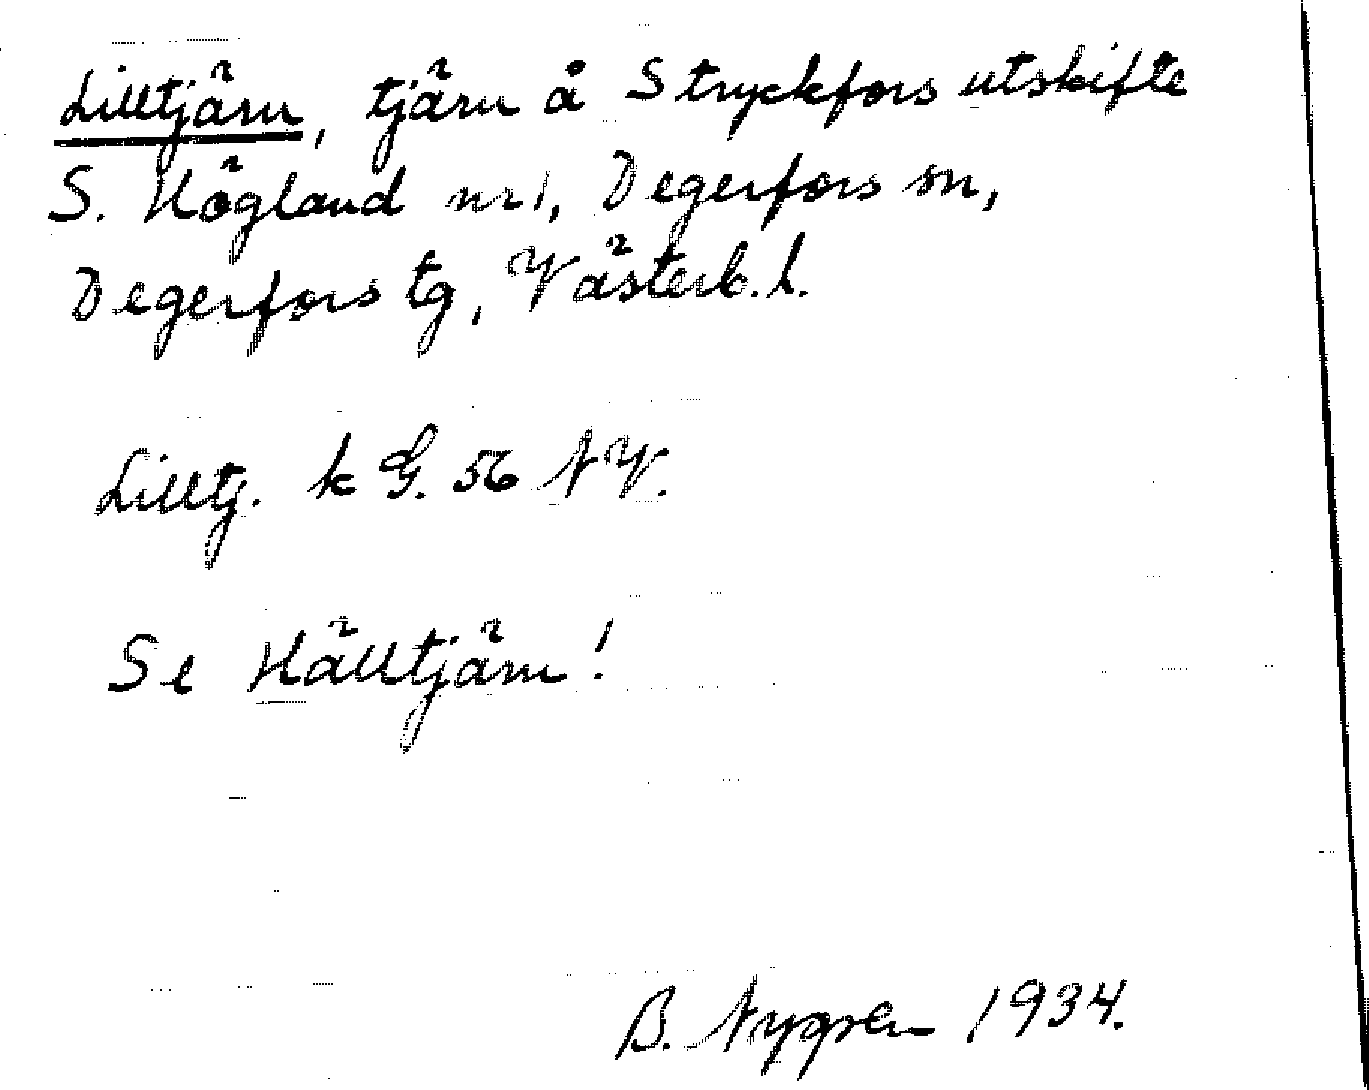 Lilltjärn, tjärn å Stryckfors utskifte
S. Högland nr 1, Degerfors sn,
Degerfors tg, Västerb. l.
Lilltj. k G. 56 NV.
Se Hälltjärn!
B. Nygren 1934.